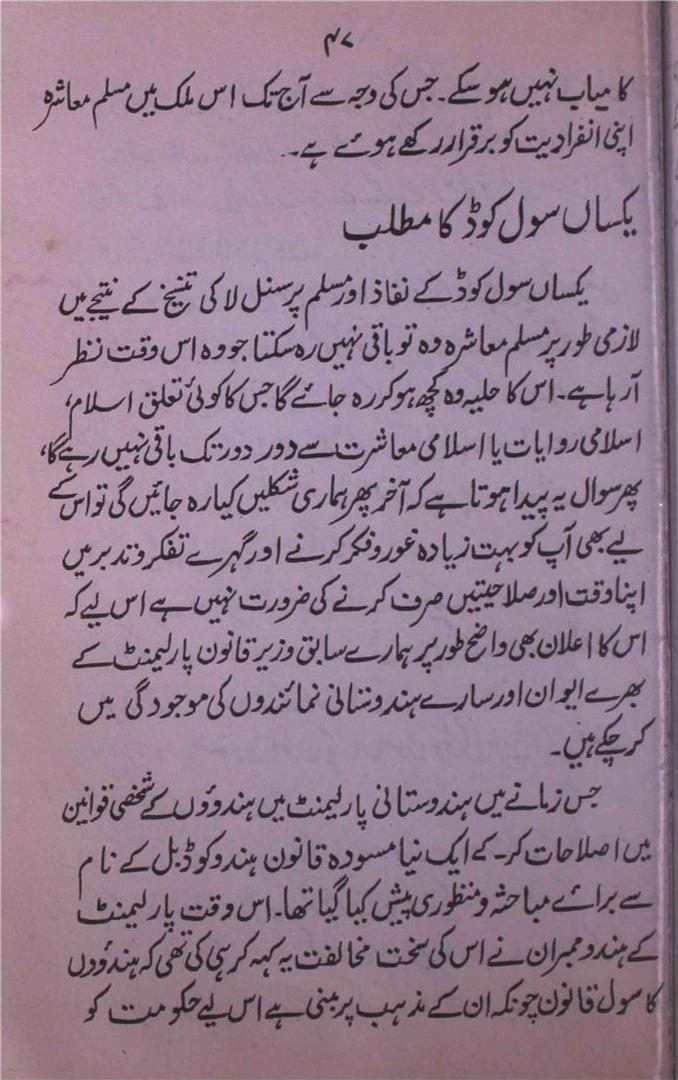 ۴۷
کامیاب نہیں ہو سکے۔ جس کی وجہ سے آج تک اس ملک میں مسلم معاشرہ
اپنی انفرادیت کو برقرار رکھے ہوئے ہے۔
یکساں سول کوڈ کا مطلب
یکساں سول کوڈ کے نفاذ اور مسلم پرسنل لا کی تنسیخ کے نتیجے میں
لازمی طور پر مسلم معاشرہ وہ تو باقی نہیں رہ سکتا جو وہ اس وقت نظر
آ رہا ہے۔ اس کا حلیہ وہ کچھ ہو کر رہ جائے گا جس کا کوئی تعلق اسلام،
اسلامی روایات یا اسلامی معاشرت سے دور دور تک باقی نہیں رہے گا،
پھر سوال یہ پیدا ہوتا ہے کہ آخر پھر ہماری شکلیں کیا رہ جائیں گی تو اس کے
لیے بھی آپ کو بہت زیادہ غور و فکر کرنے اور گہرے تفکر و تدبر میں
اپنا وقت اور صلاحیتیں صرف کرنے کی ضرورت نہیں ہے اس لیے کہ
اس کا اعلان بھی واضح طور پر ہمارے سابق وزیر قانون پارلیمنٹ کے
بھرے ایوان اور سارے ہندوستانی نمائندوں کی موجودگی میں
کر چکے ہیں۔
جس زمانے میں ہندوستانی پارلیمنٹ میں ہندوؤں کے شخصی قوانین
میں اصلاحات کر کے ایک نیا مسودہ قانون ہندو کوڈ بل کے نام
سے برائے مباحثہ و منظوری پیش کیا گیا تھا۔ اس وقت پارلیمنٹ
کے ہندو ممبران نے اس کی سخت مخالفت یہ کہہ کر ہی کی تھی کہ ہندوؤں
کا سول قانون چونکہ ان کے مذہب پر مبنی ہے اس لیے حکومت کو